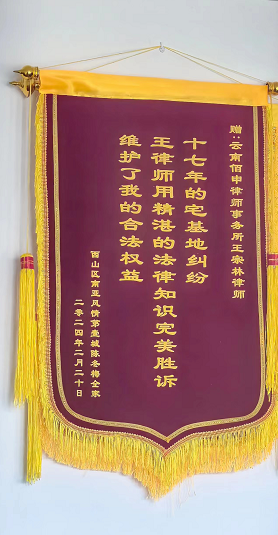 赠:云南佰申律师事务所王宗林律师
十七年的宅基地纠纷
王律师用精湛的法律知识完美胜诉
维护了我的合法权益
西山区南亚风情第壹城陈冬梅全家
二零二四年二月二十日